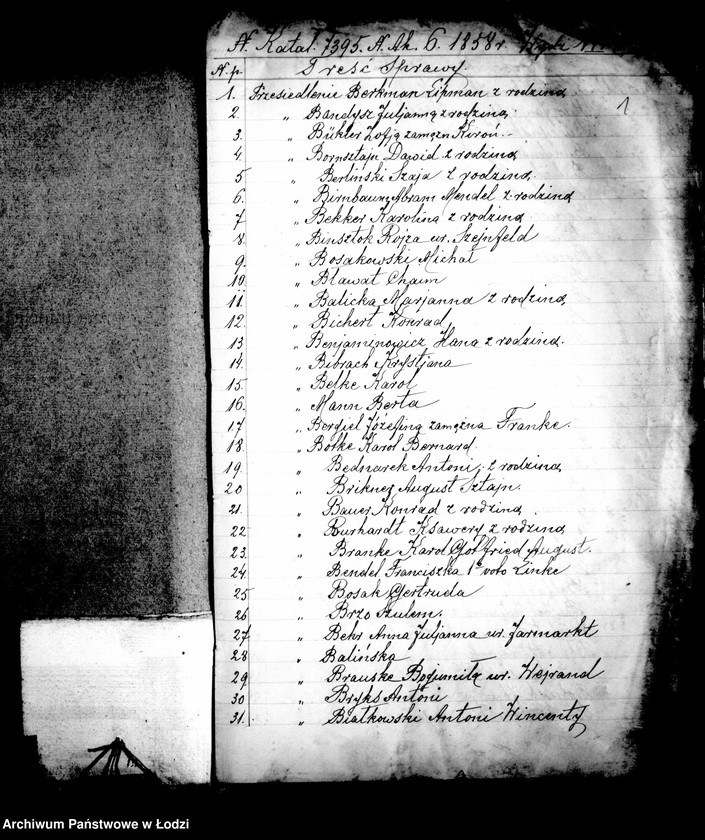 N. Katal. 7395. N. Ak. 6. 1858 r.
N. p. Treść Sprawy
1
1. Przesiedlenie Berkman Lipman z rodziną
2 „ Bandysz Juljannę z rodziną
3. „ Bükler Zofją zamężn Kiroń
4 „ Bornsztajn Dawid z rodziną
5 „ Berliński Szaja z rodziną.
6. „ Birnbaum Abram Mendel z rodziną
7. „ Bekker Karolina z rodziną
8. „ Binsztok Rojza ur. Szejnfeld
9. „ Bosakowski Michał
10. „ Bławat Chaim
11. „ Balicka Marjanna z rodziną
12. „ Bichert Konrad
13 „ Benjaminowicz Hana z rodziną.
14. „ Bibrach Krystjana
15. „ Belke Karol
16. „ Mann Berta
17 „ Bergiel Józefinę zamężna Franke.
18. „ Botke Karol Bernard.
19. „ Bednarek Antoni z rodziną
20 „ Briknez August Sztajn.
21. „ Bauer Konrad z rodziną
22 „ Burhardt Ksawery z rodziną
23. „ Branke Karol Gotfried August.
24. „ Bendel Franciszka 1º voto Linke
25 „ Bosak Gertruda
26 „ Brzo Szulem.
27 „ Behr Anna Juljanna ur. Jarmarkt
28 „ Balińską
29 „ Brauske Bogumiłę ur. Wejrand
30 „ Bryks Antoni
31. „ Białkowski Antoni Wincenty
Archiwum Państwowe w Łodzi